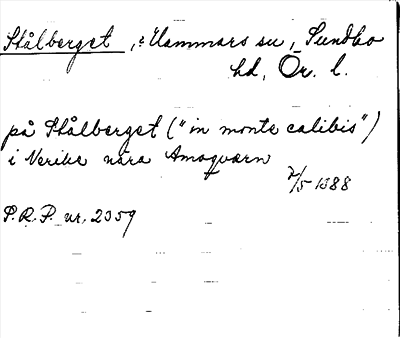 Stålberget, ?Hammars sn, Sundbo
hd, Ör. l.
på Stålberget ("in monte calibis")
i Nerike nära Amogværn
7/5 1388
P.R.P. nr. 2359